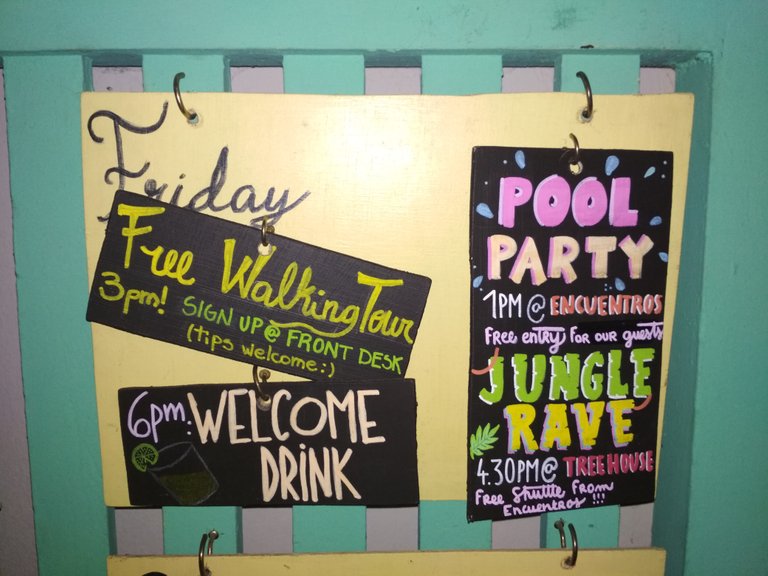 Friday
Free Walking Tour
3pm! SIGN UP @ FRONT DESK
(tips welcome:)
6pm: WELCOME
DRINK
POOL
PARTY
1PM @ ENCUENTROS
Free entry for our guests
JUNGLE
RAVE
4.30PM @ TREEHOUSE
Free Shuttle From
Encuentros !!!